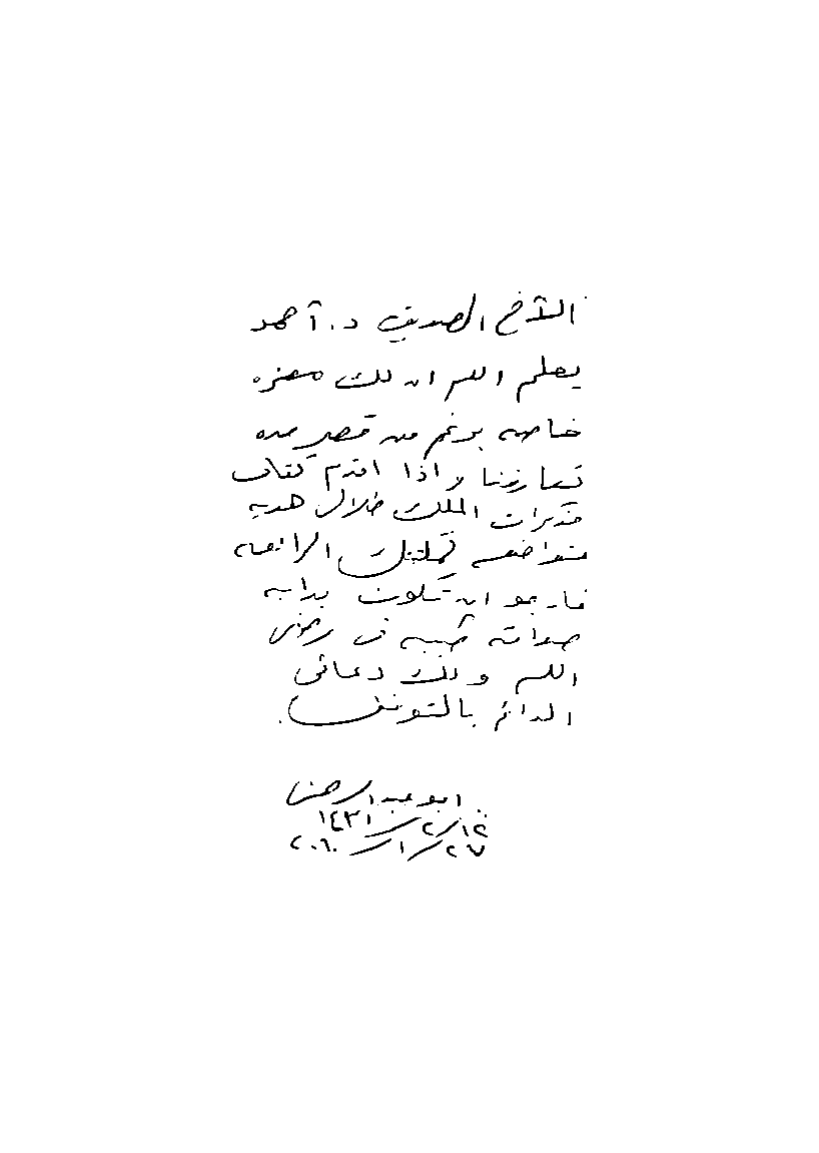 الأخ الصديق د. أحمد
يعلم الله ان لك معزه
خاصه برغم من قصر مده
تعارفنا واذا اقدم كتاب
مذكرات الملك طلال هديه
متواضعه الرائعه
فارجو ان تكون بدايه
صداقه طيبه في رضى
الله ولك دعائي
الدائم بالتوفيق.
ابو عبد الرحمن
١٢/٢/١٤٣١
٢٧/١/٢٠١٠